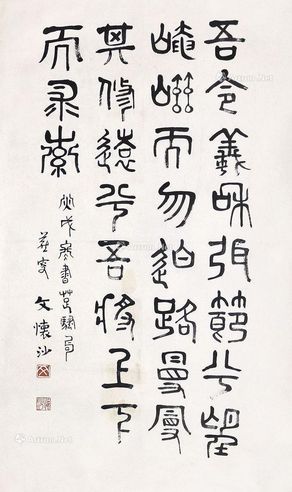 吾令羲和弭節兮望
崦嵫而勿迫路曼曼
其修遠兮吾將上下
而求索
書楚騷句
燕叟文懷沙
Artron.Net